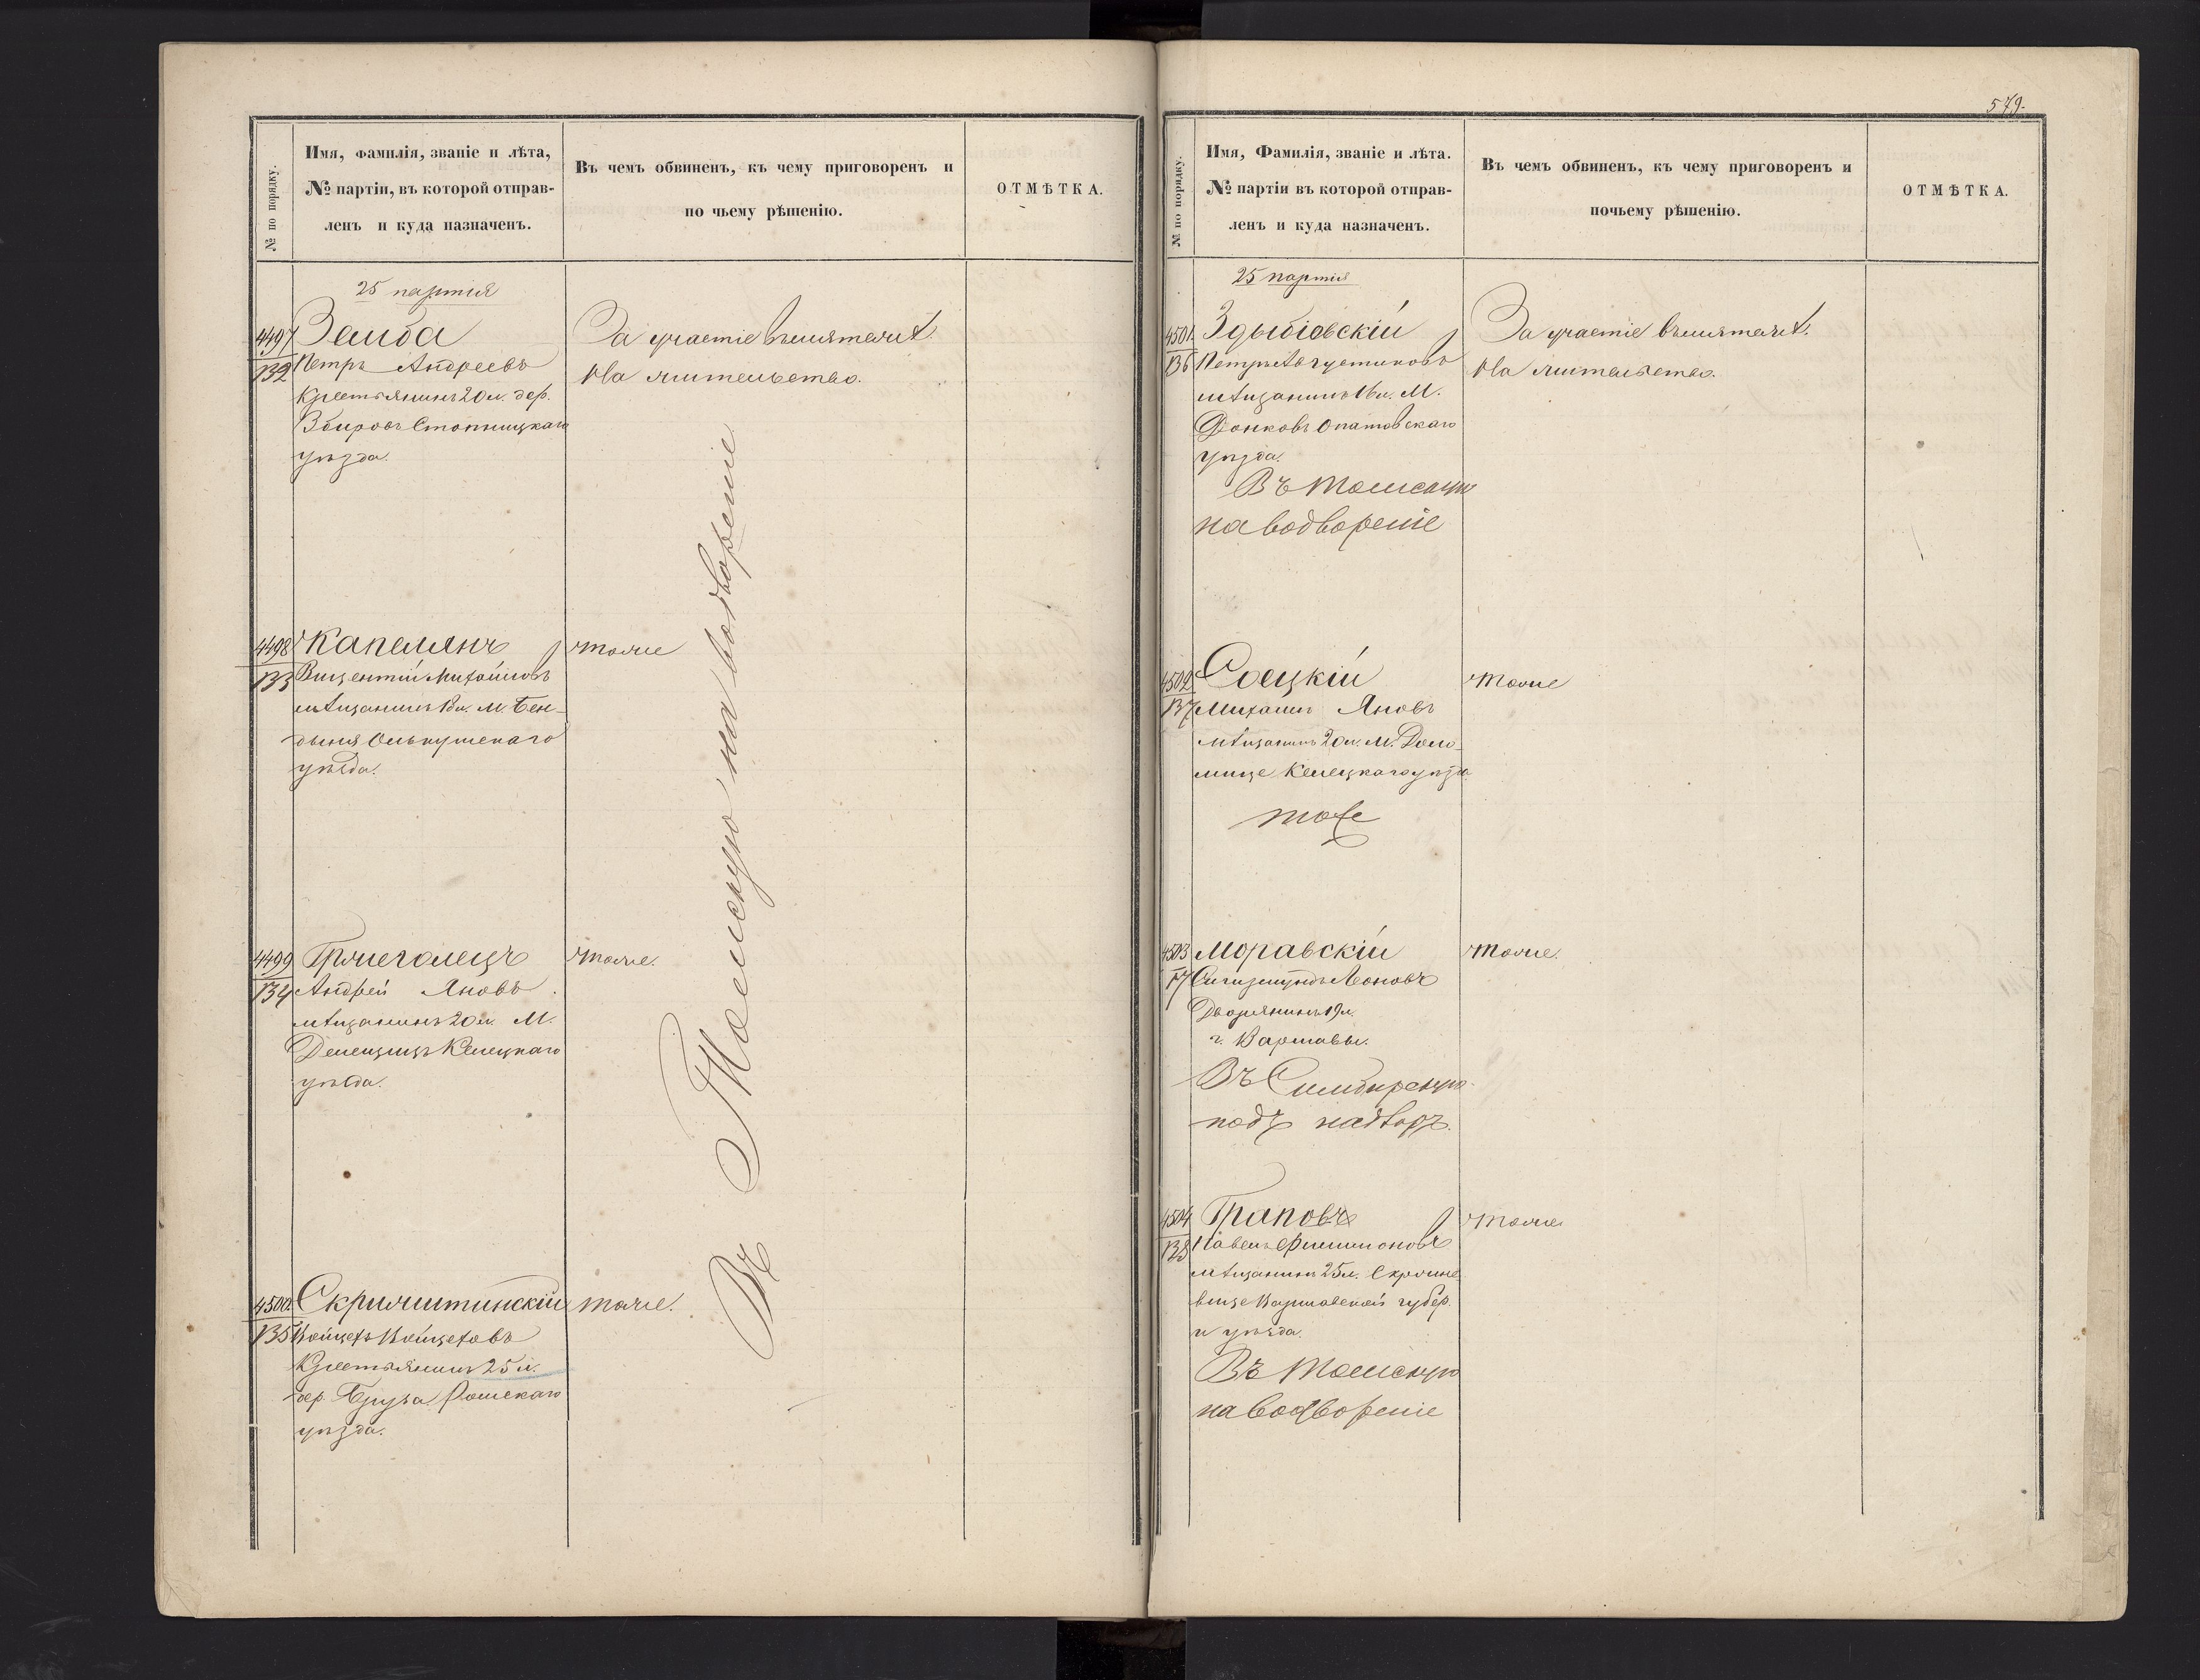 № по порядку.
Имя, фамилія, званіе и лѣта,
№ партіи, въ которой отправ-
ленъ и куда назначенъ.
Въ чемъ обвиненъ, къ чему приговоренъ и
по чьему рѣшенію.
ОТМѢТКА.
25 партія
4497
132
Заиба
Петръ Андреевъ
Крестьянинъ 20 л. дер.
Стопницкаго
уѣзда.
За участіе въ мятежѣ.
4498
133
Капелянъ
Викентій Михайловъ
мѣщанинъ 18 л. М. Бен-
дыня Олькушскаго
уѣзда.
тоже
4499
134
Андрей Яновъ
мѣщанинъ 20 л. М.
Кѣлецкаго
уѣзда.
тоже.
4500
135
Войцехъ Войцеховъ
Крестьянинъ 25 л.
дер.
уѣзда.
тоже.
Въ Томскую на водвореніе
579.
№ по порядку.
Имя, Фамилія, званіе и лѣта.
№ партіи въ которой отправ-
ленъ и куда назначенъ.
Въ чемъ обвиненъ, къ чему приговоренъ и
почьему рѣшенію.
ОТМѢТКА.
25 партія
4501.
136
Здыбіовскій
Петръ Августиновъ
мѣщанинъ 16 л. М.
Опатовскаго
уѣзда.
Въ Томскую
на водвореніе
За участіе въ мятежѣ.
4502
137
Соецкій
Михаилъ Яновъ
мѣщанинъ 20 л. М.
Келецкаго уѣзда
тоже
тоже
4503
Моравскій
Сигизмундъ Леоновъ
Дворянинъ 19 л.
г. Варшавы.
Въ Симбирскую
подъ надзоръ.
тоже.
4504
138
Граповъ
Павелъ Филимоновъ
мѣщанинъ 25 л. Скрчине
вице Варшавской губер.
и уѣзда.
Въ Томскую
на водвореніе
тоже